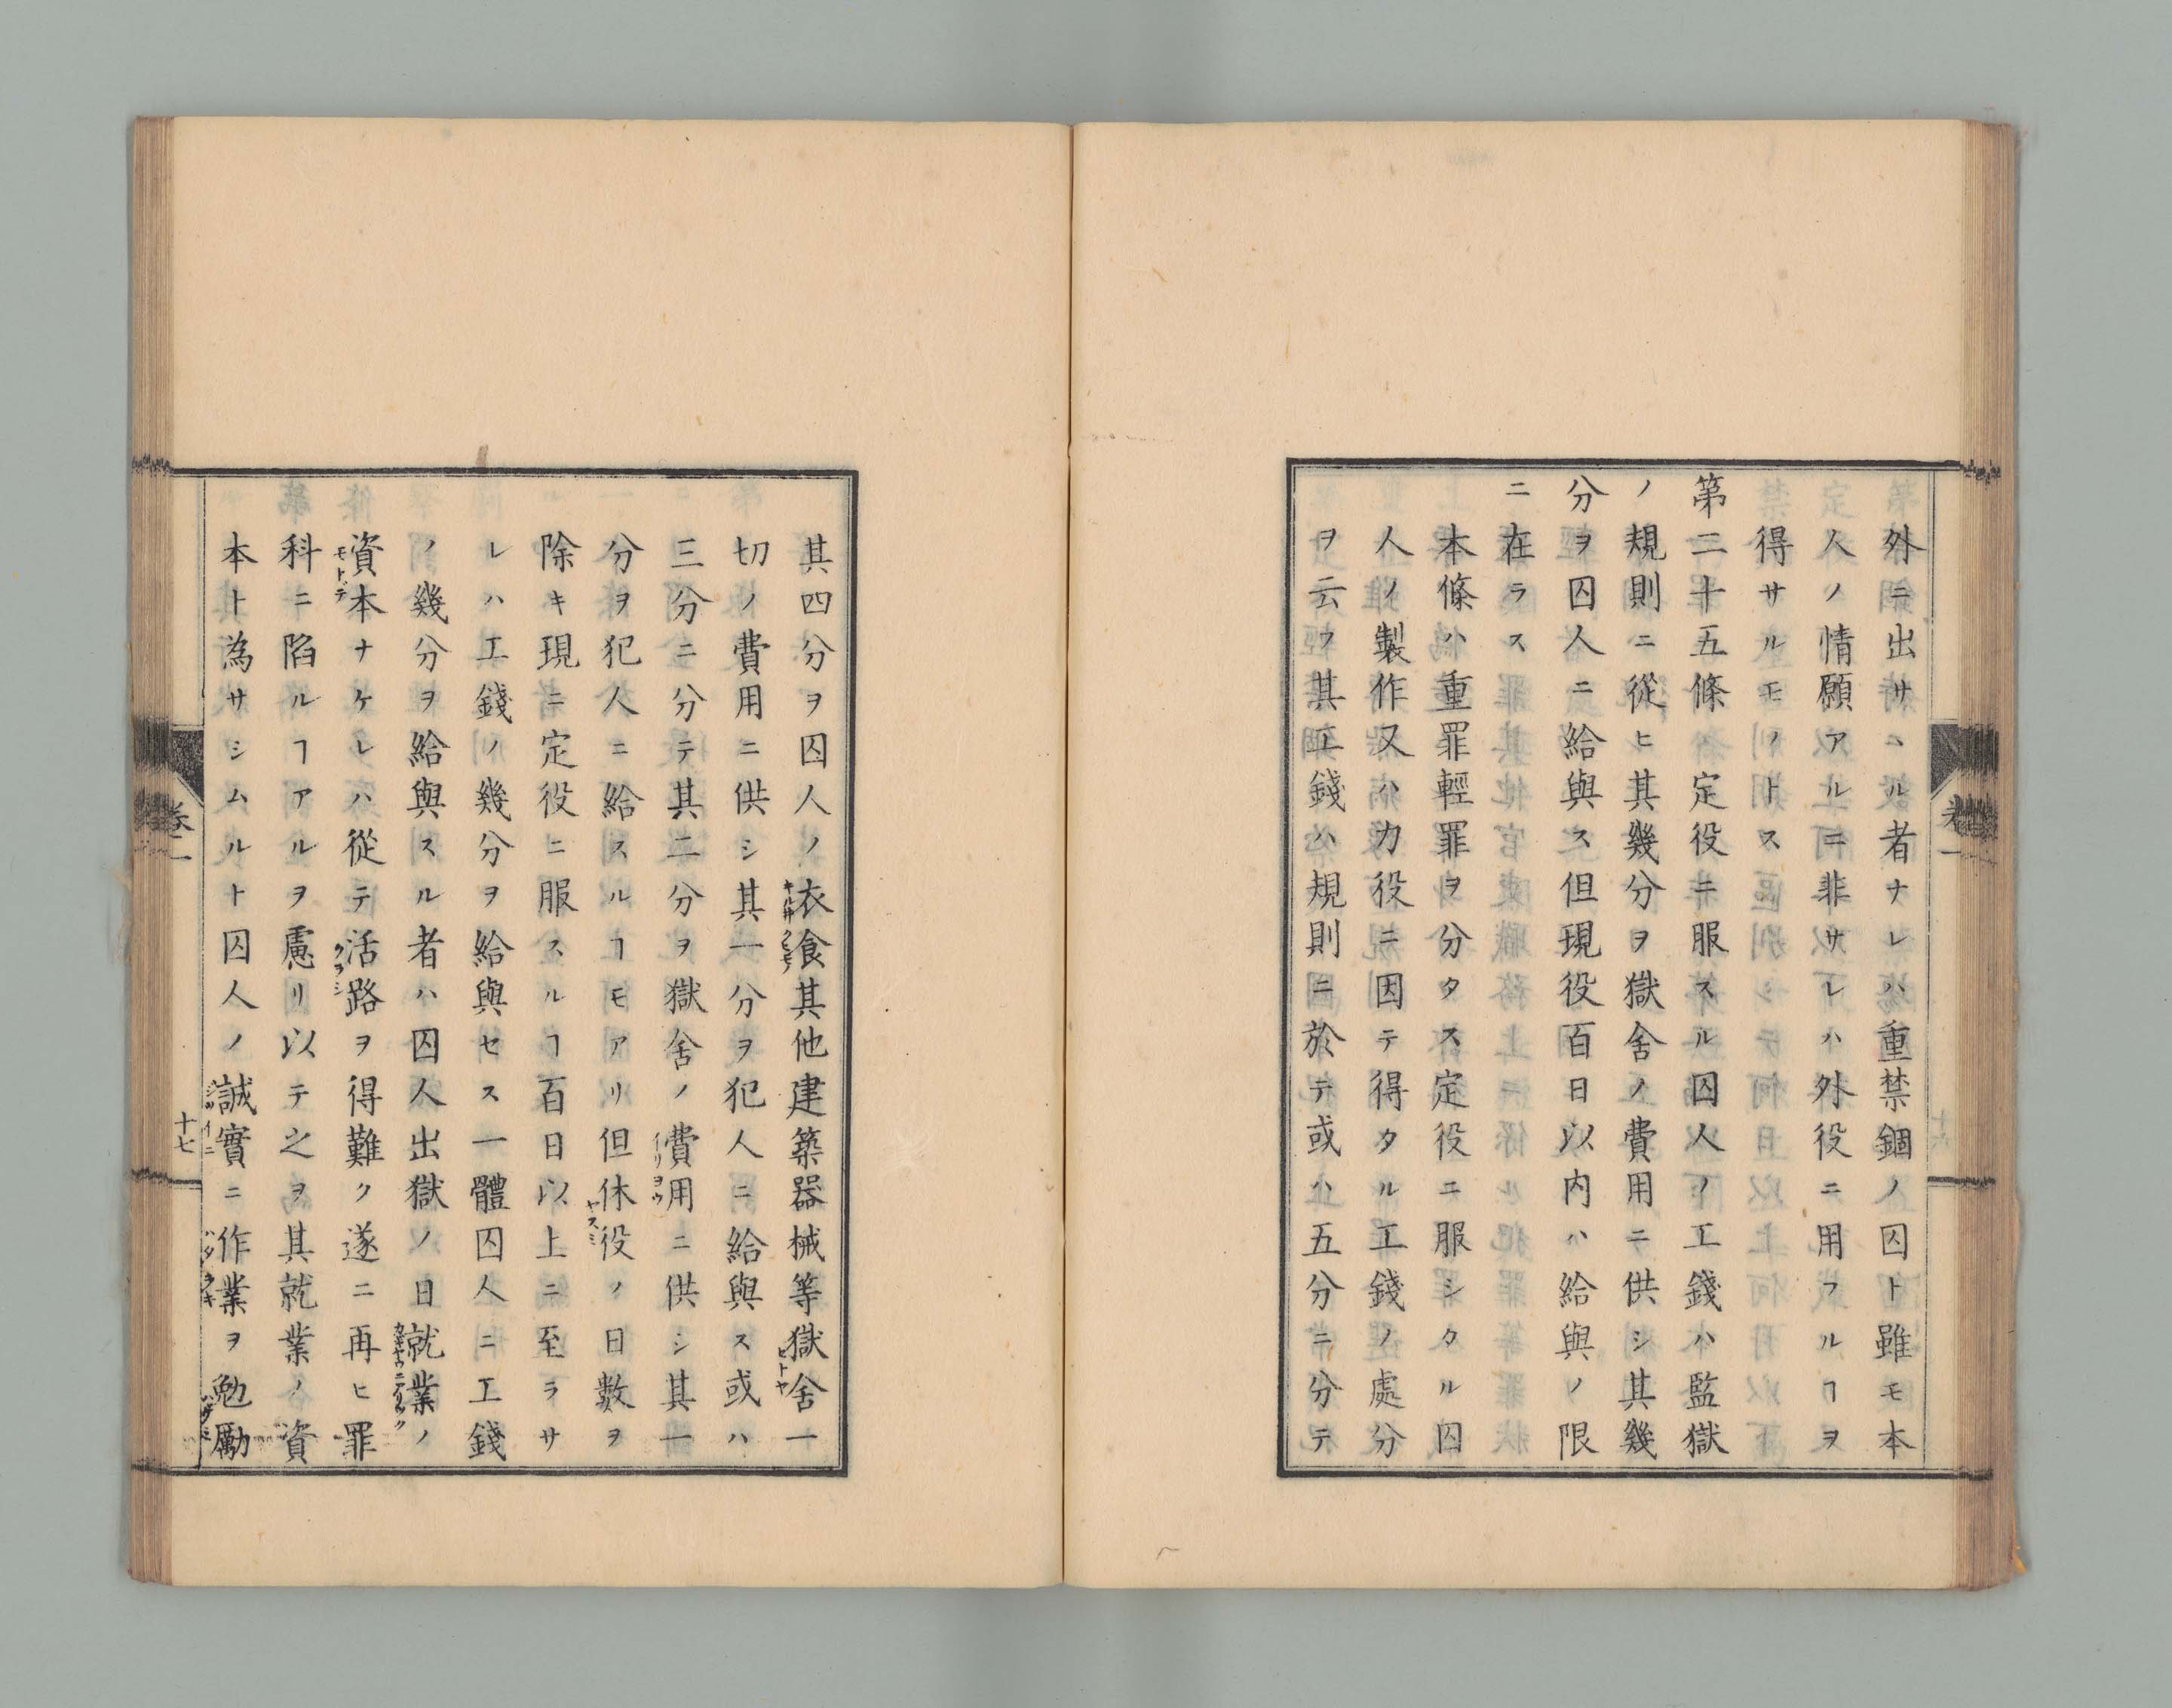 外ニ出サヽル者ナレハ重禁錮ノ囚ト雖モ本
人ノ情願アルニ非サレハ外役ニ用フルヿヲ
得サルモノトス
第二十五條 定役ニ服スル囚人ノ工錢ハ監獄
ノ規則ニ從ヒ其幾分ヲ獄舍ノ費用ニ供シ其幾
分ヲ囚人ニ給與ス但現役百日以内ハ給與ノ限
ニ在ラス
本條ハ重罪輕罪ヲ分タス定役ニ服シタル囚
人ノ製作又ハ力役ニ因テ得タル工錢ノ處分
ヲ云フ其工錢ハ規則ニ於テ或ハ五分ニ分テ
卷一
其四分ヲ囚人ノ衣食其他建築器械等獄舍一
切ノ費用ニ供シ其一分ヲ犯人ニ給與ス或ハ
三分ニ分テ其二分ヲ獄舍ノ費用ニ供シ其一
分ヲ犯人ニ給スルヿモアリ但休役ノ日數ヲ
除キ現ニ定役ニ服スルヿ百日以上ニ至ラサ
レハ工錢ノ幾分ヲ給與セス一體囚人ニ工錢
ノ幾分ヲ給與スル者ハ囚人出獄ノ日就業ノ
資本ナケレハ從テ活路ヲ得難ク遂ニ再ヒ罪
科ニ陷ルヿアルヲ慮リ以テ之ヲ其就業ノ資
本ト為サシムルト囚人ノ誠實ニ作業ヲ勉勵
卷一
十七
ヒトヤ
イリヨウ
ヤスミ
モトデ
クラシ